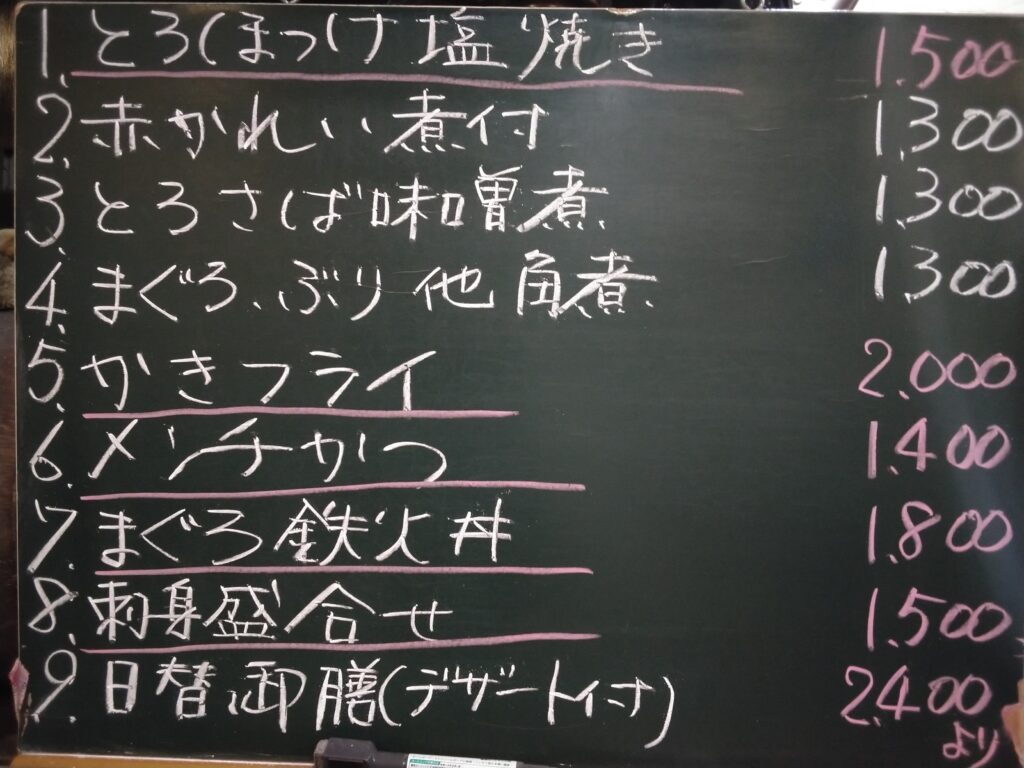 1. とろほまっけ塩焼き 1.500
2. 赤かれい煮付 1.300
3. とろさば味噌煮. 1.300
4. まぐろ、ぶり他角煮. 1.300
5. かきフライ 2.000
6. メンチかつ 1.400
7. まぐろ鉄火丼 1.800
8. 刺身盛合せ 1.500
9. 日替御膳(デザート付) 2.400
より